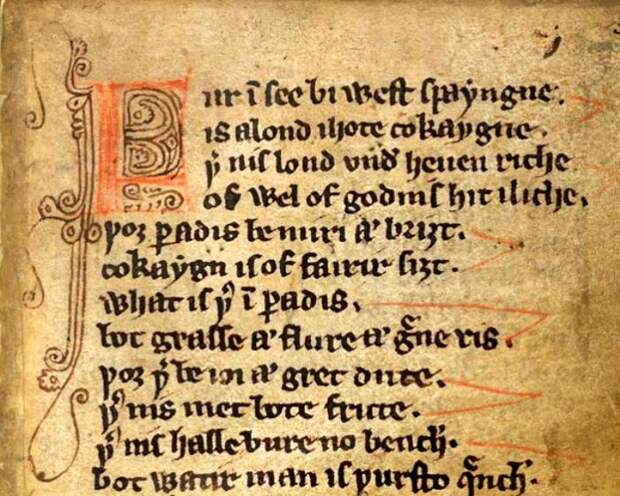 Fur ī see bi west spayngne.
is a lond ihote cokaygne.
þ̕ nis lond vnd̕ heuen riche
of wel of godnis hit iliche.
þoȝ ꝑadis be miri ⁊ briȝt.
cokaygn is of fairir siȝt.
what is þ̕ ī ꝑadis.
bot grasse ⁊ flure ⁊ g̕ne ris.
þoȝ þ̕ be ioi ⁊ gret dute.
þ̕ nis met bote frute.
þ̕ nis halle bure no bench̕.
bot watir man is þursto q̕nch̕.